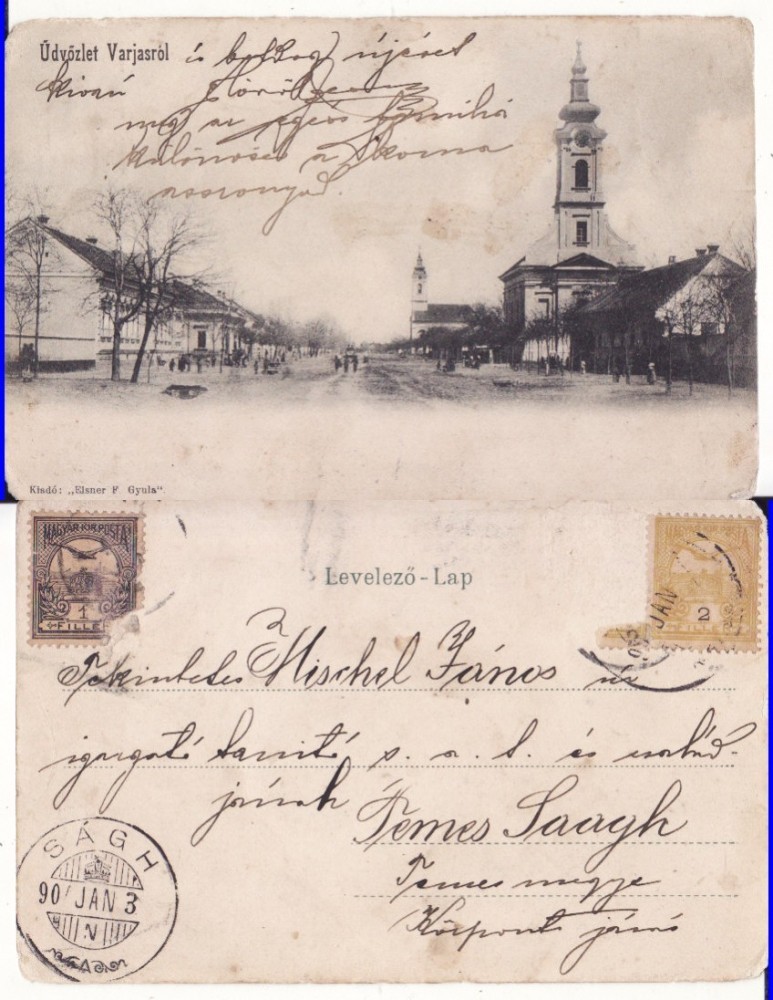 Üdvözlet Varjasról és boldog újévet
kíván
meg az egész família
különösen a
asszonynak.
Kiadó: „Elsner F Gyula“.
MAGYAR·KIR·POSTA
1
FILLÉR
Levelező-Lap
2
JAN
Tekintetes Mischel János úr
igazgató tanító s. a. t. és család-
jának
Temes Saagh
Temes megye
Központi járás
SÁGH
90/ JAN 3
N
A